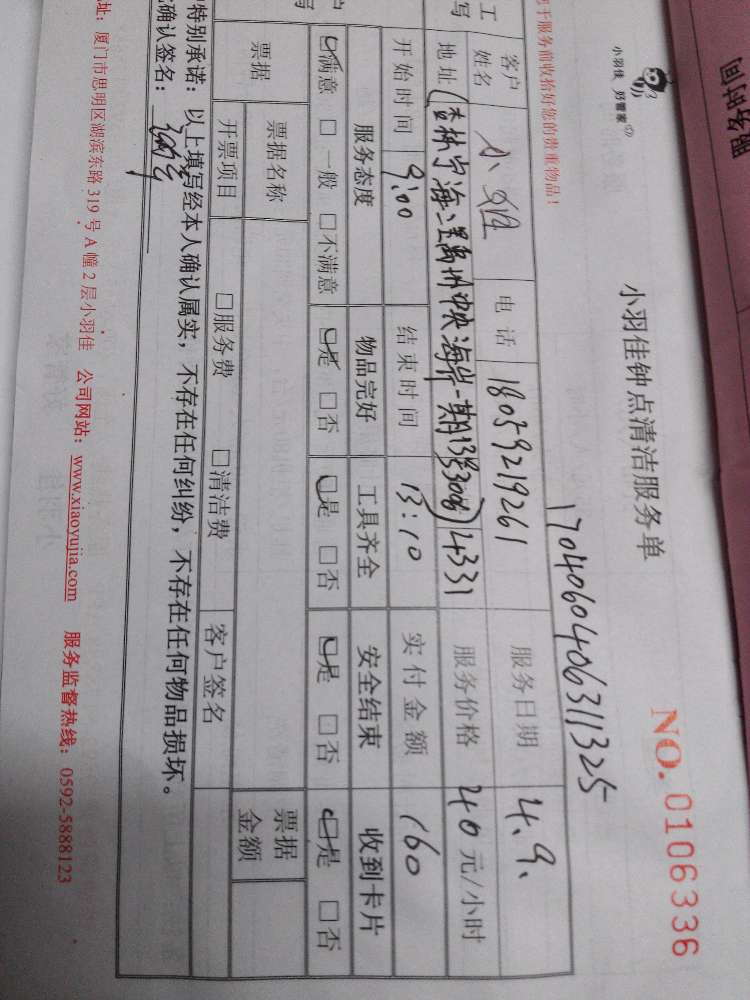 服务时间
小羽佳 好管家
小羽佳钟点清洁服务单
NO. 0106336
1704060406311325
于服务前收拾好您的贵重物品！
客户姓名 小姐 电话 18059219261 服务日期 4.9.
地址 (杏林宁海三里禹州中央海岸一期13号3006) 4331 服务价格 40 元/小时
开始时间 9:00 结束时间 13:10 实付金额 160
服务态度 物品完好 工具齐全 安全结束 收到卡片
☑满意 □一般 □不满意 ☑是 □否 ☑是 □否 ☑是 □否 ☑是 □否
票据 票据名称 票据金额
开票项目 □服务费 □清洁费 客户签名
特别承诺：以上填写经本人确认属实，不存在任何纠纷，不存在任何物品损坏。
确认签名：
址：厦门市思明区湖滨东路 319 号 A 幢 2 层小羽佳 公司网站：www.xiaoyujia.com 服务监督热线：0592-5888123